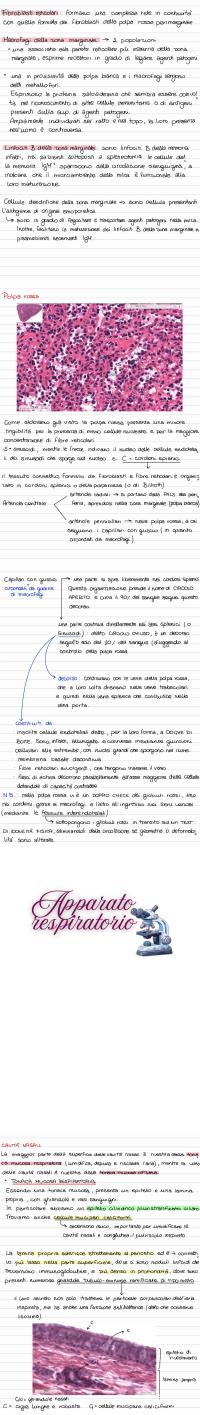 Fibroblasti reticolari: formano una complessa rete in continuità
con quella formata dai fibroblasti della polpa rossa perimarginale
Macrofagi della zona marginale → 2 popolazioni:
• una associata alla parete reticolare più esterna della zona
marginale; esprime recettori in grado di legare agenti patogeni
• una in prossimità della polpa bianca e i macrofagi vengono
detti metallofili.
Esprimono la proteina
nel riconoscimento di altre cellule immunitarie o di antigeni
presenti sulla
Ampiamente individuati nel ratto e nel topo, la loro presenza
nell'uomo è controversa
Linfociti B della zona marginale: sono linfociti B della memoria
infatti, nei pazienti sottoposti a splenectomia le cellule del
la memoria IgM⁺ spariscono dalla circolazione sanguigna, a
indicare che il microambiente della milza è funzionale alla
loro maturazione.
Cellule dendritiche della zona marginale → sono cellule presentanti
l'antigene di origine emopoietica
↳ sono in grado di fagocitare e trasportare agenti patogeni nella milza.
Inoltre, facilitano la maturazione dei linfociti B della zona marginale e
plasmablasti secernenti IgM.
Polpa rossa
Come abbiamo già visto la polpa rossa presenta una minore
tingibilità per la presenza di meno cellule nucleate e per la maggiore
concentrazione di fibre reticolari.
S = sinusoidi, mentre le frecce indicano il nucleo delle cellule endotelia
li dei sinusoidi che sporge nel vuoto e C = cordoni splenici
Il tessuto connettivo, formato da fibroblasti e fibre reticolari è organiz
zato in cordoni splenici o della polpa rossa (o di Billroth)
Arteriola centrale
arteriole radiali → si portano dalla PALS alla peri
feria, aprendosi nella zona marginale (polpa bianca)
arteriole penicillari → nella polpa rossa, a cui
seguono i capillari con guscio (in quanto
circondati da macrofagi)
Capillari con guscio
circondati da guaina
di macrofagi
una parte si apre liberamente nei cordoni splenici
Questa organizzazione prende il nome di CIRCOLO
APERTO e circa il 90% del sangue segue questo
decorso.
una parte continua direttamente nei seni splenici (o
Sinusoidi) : detto CIRCOLO CHIUSO, è un decorso
seguito solo dal 10% del sangue (sfuggendo al
controllo della polpa rossa)
decorso: continuano con le vene della polpa rossa,
che a loro volta drenano nelle vene trabecolari
e quindi nella vena splenica che confluisce nella
vena porta.
costituiti da:
• insolite cellule endoteliali dette, per la loro forma, a DOGHE DI
BOTTE. Sono, infatti, allungate e connesse mediante giunzioni
cellulari alle estremità, con nuclei grandi che sporgono nel lume.
• membrana basale discontinua
• fibre reticolari avvolgenti, che tengono insieme il vaso
• fasci di actina decorrono parallelamente all'asse maggiore della cellula
dotandole di capacità contrattile
N.B.: nella polpa rossa vi è un DOPPIO CHECK dei globuli rossi, uno
nei cordoni grazie ai macrofagi, e l'altro all'ingresso nei seni venosi
(mediante le fessure interendoteliali)
↳ sottopongono i globuli rossi in transito ad un TEST
DI IDONEITÀ FISICA, eliminandoli dalla circolazione se geometria o deformabi
lità sono alterate.
Apparato
respiratorio
CAVITÀ NASALI
La maggior parte della superficie delle cavità nasali è rivestita dalla tona
ca mucosa respiratoria (umidifica, depura e riscalda l'aria), mentre la volta
delle cavità nasali è rivestita dalla tonaca mucosa olfattiva.
• TONACA MUCOSA RESPIRATORIA
Essendo una tonaca mucosa, presenta un epitelio e una lamina
propria, con ghiandole e vasi sanguigni.
In particolare abbiamo un epitelio cilindrico pluristratificato ciliato.
Troviamo anche cellule mucipare caliciformi
↳ secernono muco, importante per umidificare le
cavità nasali e conglobare il pulviscolo aspirato
La lamina propria aderisce strettamente al periostio ed è + connetti
va più lassa nella parte superficiale, dove ci sono noduli linfoidi che
secernono immunoglobuline, e più densa in profondità, dove sono
presenti numerose ghiandole tubulo-acinose ramificate di tipo misto
il loro secreto non solo trattiene le particelle corpuscolate dell'aria
inspirata, ma ha anche una funzione antibatterica (dato che contiene
lisozima)
C
G
epitelio di
rivestimento
lamina propria
GN = ghiandole nasali
C = ciglia lunghe e robuste. G = cellule mucipare caliciformi